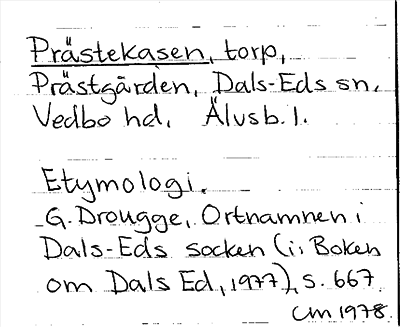 Prästekasen, torp,
Prästgården, Dals-Eds sn.
Vedbo hd. Älvsb. l.
Etymologi.
G. Drougge, Ortnamnen i
Dals-Eds socken (i: Boken
om Dals Ed, 1977), s. 667
CM 1978.